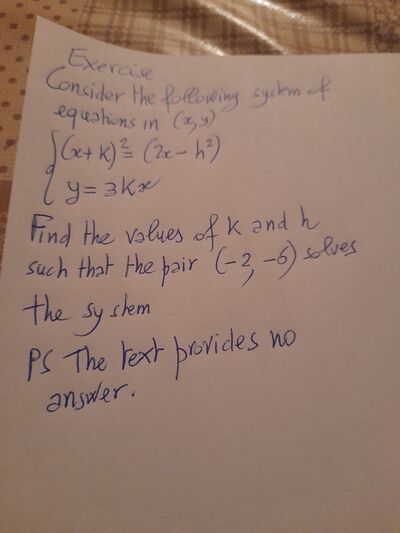 Exercise
Consider the following system of
equations in (x,y)
{(x+k)²= (2x-h²)
y= 3kx
Find the values of k and h
such that the pair (-2,-6) solves
the system
PS The text provides no
answer.